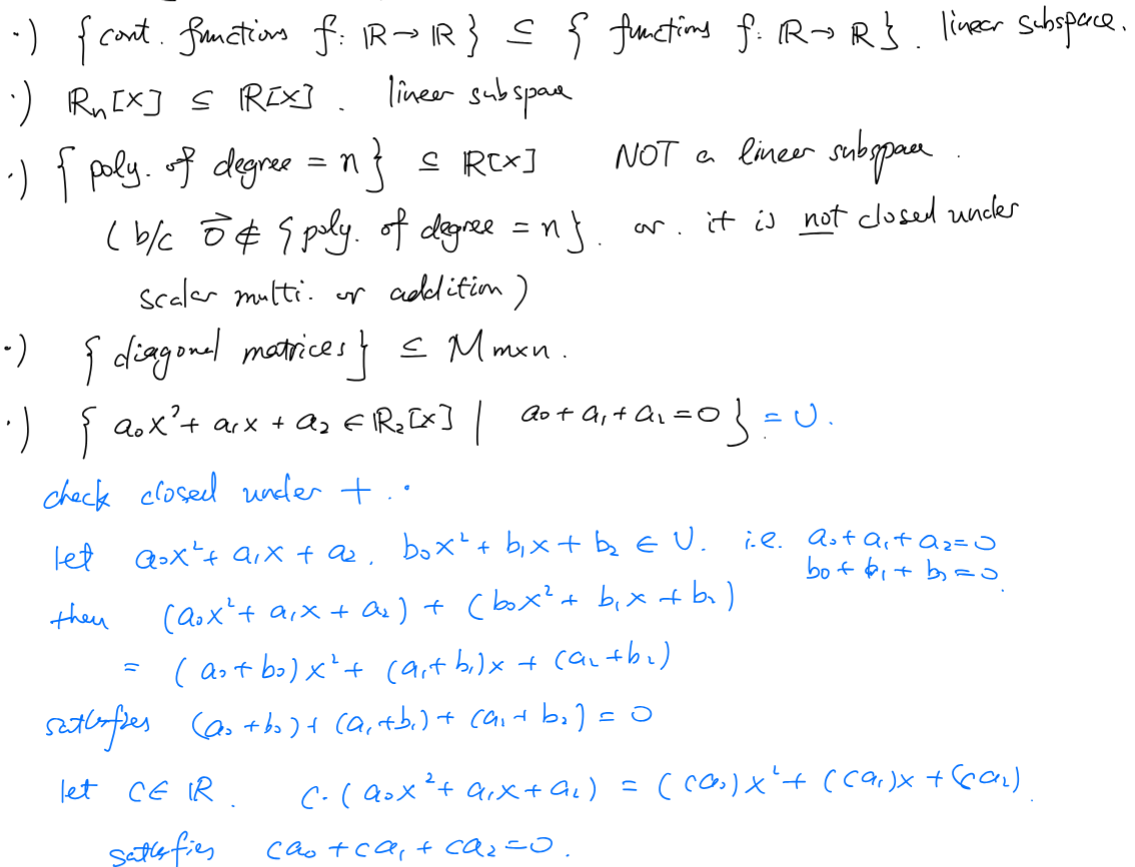 ·) { cont. functions f: ℝ→ℝ } ⊆ { functions f: ℝ→ℝ }. linear subspace.
·) ℝₙ[x] ⊆ ℝ[x]. linear subspace
·) { poly. of degree = n } ⊆ ℝ[x] NOT a linear subspace.
( b/c 0⃗ ∉ { poly. of degree = n }. or. it is not closed under
scalar multi. or addition )
·) { diagonal matrices } ⊆ M m×n.
·) { a₀x² + a₁x + a₂ ∈ ℝ₂[x] | a₀ + a₁ + a₂ = 0 } = U.
check closed under + . ·
let a₀x² + a₁x + a₂, b₀x² + b₁x + b₂ ∈ U. i.e. a₀ + a₁ + a₂ = 0
b₀ + b₁ + b₂ = 0.
then (a₀x² + a₁x + a₂) + (b₀x² + b₁x + b₂)
= (a₀ + b₀)x² + (a₁ + b₁)x + (a₂ + b₂)
satisfies (a₀ + b₀) + (a₁ + b₁) + (a₂ + b₂) = 0
let c ∈ ℝ. c·(a₀x² + a₁x + a₂) = (ca₀)x² + (ca₁)x + (ca₂).
satisfies ca₀ + ca₁ + ca₂ = 0.